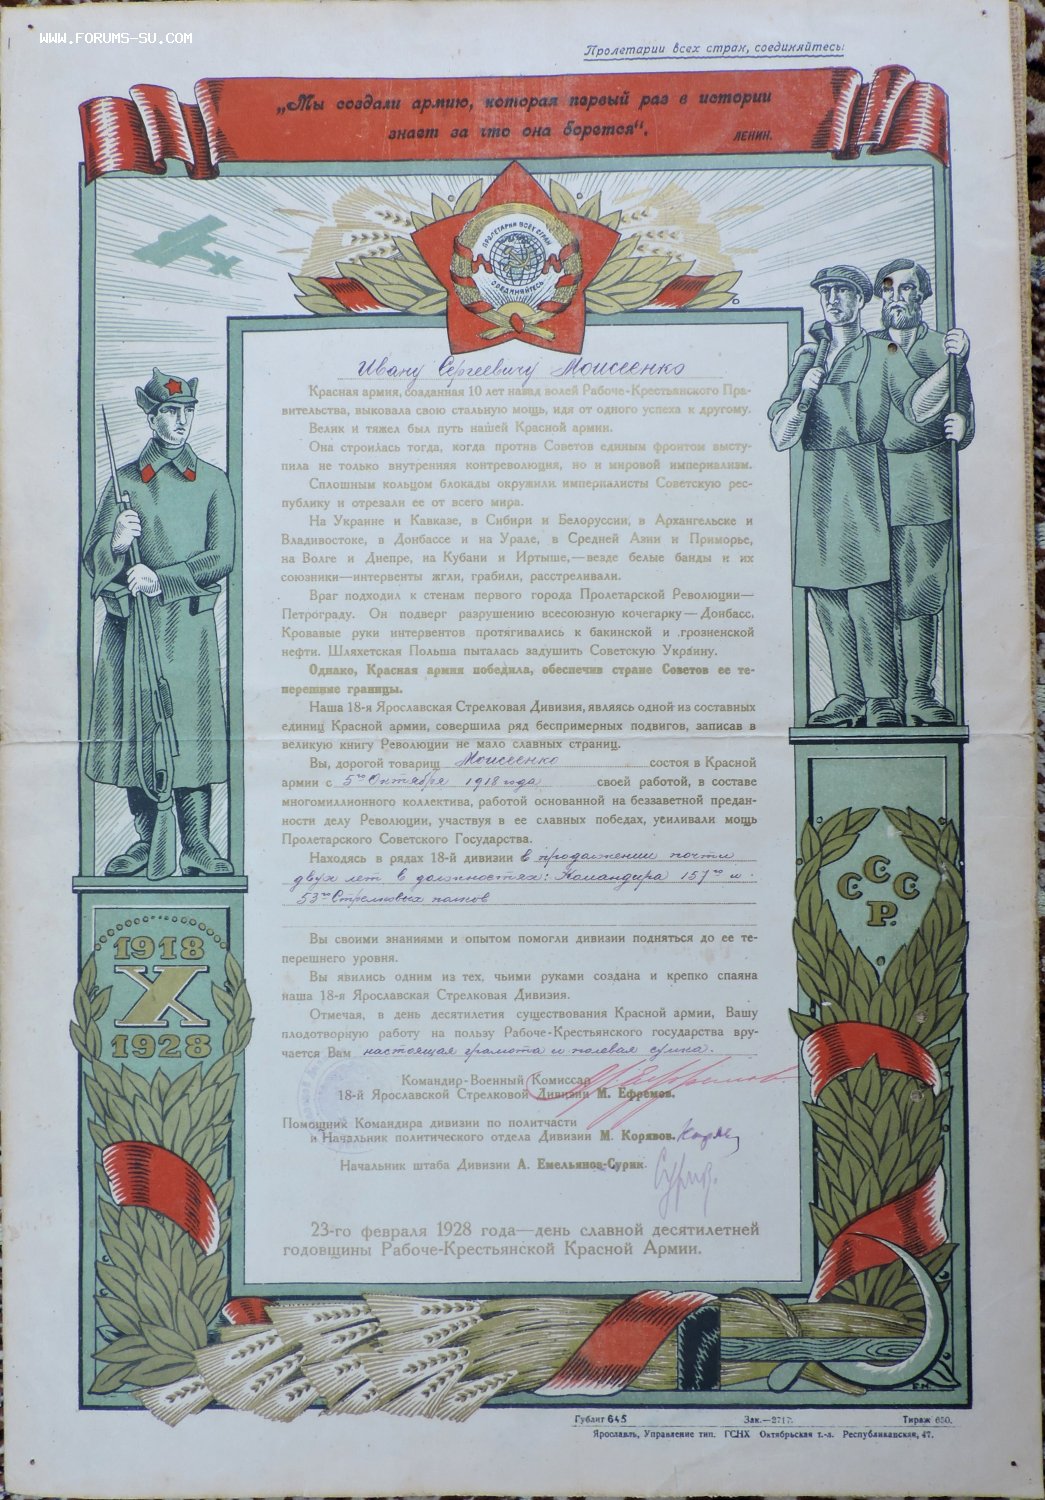 WWW.FORUMS-SU.COM
Пролетарии всех стран, соединяйтесь!
„Мы создали армию, которая первый раз в истории
знает за что она борется“.
ЛЕНИН.
ПРОЛЕТАРИИ ВСЕХ СТРАН
СОЕДИНЯЙТЕСЬ
Ивану Сергеевичу Моисеенко
Красная армия, созданная 10 лет назад волей Рабоче-Крестьянского Пра-
вительства, выковала свою стальную мощь, идя от одного успеха к другому.
Велик и тяжел был путь нашей Красной армии.
Она строилась тогда, когда против Советов единым фронтом высту-
пила не только внутренняя контреволюция, но и мировой империализм.
Сплошным кольцом блокады окружили империалисты Советскую рес-
публику и отрезали ее от всего мира.
На Украине и Кавказе, в Сибири и Белоруссии, в Архангельске и
Владивостоке, в Донбассе и на Урале, в Средней Азии и Приморье,
на Волге и Днепре, на Кубани и Иртыше,—везде белые банды и их
союзники—интервенты жгли, грабили, расстреливали.
Враг подходил к стенам первого города Пролетарской Революции—
Петрограду. Он подверг разрушению всесоюзную кочегарку—Донбасс.
Кровавые руки интервентов протягивались к бакинской и грозненской
нефти. Шляхетская Польша пыталась задушить Советскую Украину.
Однако, Красная армия победила, обеспечив стране Советов ее те-
перешние границы.
Наша 18-я Ярославская Стрелковая Дивизия, являясь одной из составных
единиц Красной армии, совершила ряд беспримерных подвигов, записав в
великую книгу Революции не мало славных страниц.
Вы, дорогой товарищ Моисеенко состоя в Красной
армии с 5го Октября 1918 года своей работой, в составе
многомиллионного коллектива, работой основанной на беззаветной предан-
ности делу Революции, участвуя в ее славных победах, усиливали мощь
Пролетарского Советского Государства.
Находясь в рядах 18-й дивизии в продолжении почти
двух лет в должностях: Командира 157го и
53го Стрелковых полков
Вы своими знаниями и опытом помогли дивизии подняться до ее те-
перешнего уровня.
Вы явились одним из тех, чьими руками создана и крепко спаяна
наша 18-я Ярославская Стрелковая Дивизия.
Отмечая, в день десятилетия существования Красной армии, Вашу
плодотворную работу на пользу Рабоче-Крестьянского государства вру-
чается Вам настоящая грамота и полевая сумка.
Командир-Военный Комиссар
18-й Ярославской Стрелковой Дивизии М. Ефремов.
Помощник Командира дивизии по политчасти
и Начальник политического отдела Дивизии М. Корявов.
Начальник штаба Дивизии А. Емельянов-Сурик.
23-го февраля 1928 года—день славной десятилетней
годовщины Рабоче-Крестьянской Красной Армии.
1918
X
1928
СССР
Е.М.
Гублит 645 Зак.—2717. Тираж 650.
Ярославль, Управление тип. ГСНХ Октябрьская т.-л. Республиканская, 47.